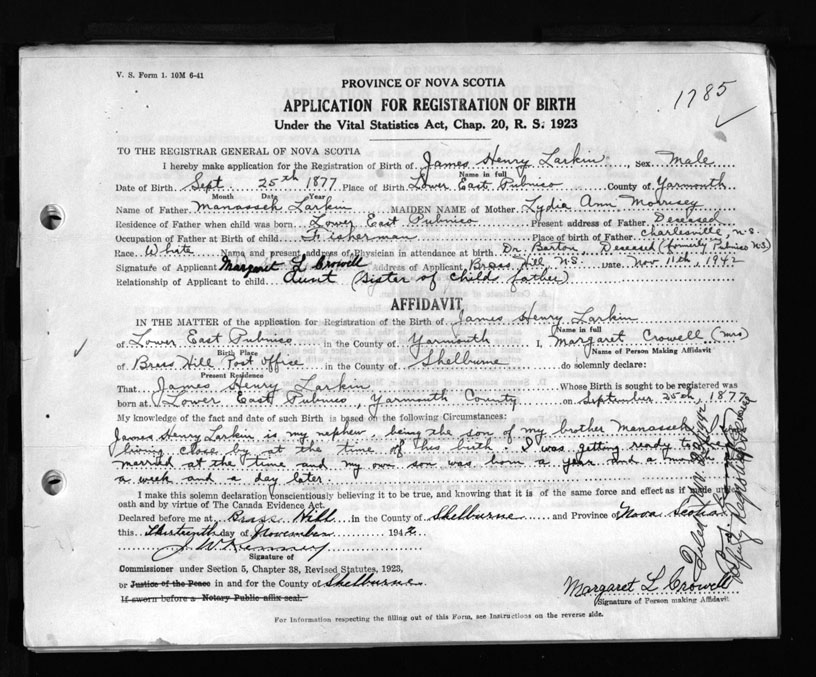 V. S. Form 1. 10M 6-41
1785
PROVINCE OF NOVA SCOTIA
APPLICATION FOR REGISTRATION OF BIRTH
Under the Vital Statistics Act, Chap. 20, R. S. 1923
TO THE REGISTRAR GENERAL OF NOVA SCOTIA
I hereby make application for the Registration of Birth of James Henry Larkin, Sex Male
Name in full
Date of Birth Sept 25th 1877 Place of Birth Lower East Pubnico County of Yarmouth
Month Day Year
Name of Father Manasseh Larkin MAIDEN NAME of Mother Lydia Ann
Residence of Father when child was born Lower East Pubnico Present address of Father Deceased
Occupation of Father at Birth of child Fisherman Place of birth of Father Charlesville, N.S.
Race White Name and present address of Physician in attendance at birth Dr. Barton Deceased (formerly Pubnico N.S.)
Signature of Applicant Margaret L Crowell Address of Applicant Brass Hill, N.S. Date Nov 11th, 1942
Relationship of Applicant to child Aunt (Sister of child father)
AFFIDAVIT
IN THE MATTER of the application for Registration of the Birth of James Henry Larkin
Name in full
of Lower East Pubnico in the County of Yarmouth I, Margaret Crowell (Mrs)
Birth Place Name of Person Making Affidavit
of Brass Hill Post Office in the County of Shelburne do solemnly declare:
Present Residence
That James Henry Larkin Whose Birth is sought to be registered was
born at Lower East Pubnico, Yarmouth County on September 25th, 1877
My knowledge of the fact and date of such Birth is based on the following Circumstances:
James Henry Larkin is my nephew, being the son of my brother Manasseh
living close by at the time of this birth. I was getting ready to
married at the time and my own son was born a year and a
a week and a day later.
I make this solemn declaration conscientiously believing it to be true, and knowing that it is of the same force and effect as if made upon
oath and by virtue of The Canada Evidence Act.
Declared before me at Brass Hill in the County of Shelburne and Province of Nova Scotia
this thirteenth day of November 1942
Signature of
Commissioner under Section 5, Chapter 38, Revised Statutes, 1923,
or Justice of the Peace in and for the County of Shelburne
If sworn before a Notary Public affix seal.
Margaret L Crowell
Signature of Person making Affidavit
For Information respecting the filling out of this Form, see Instructions on the reverse side.